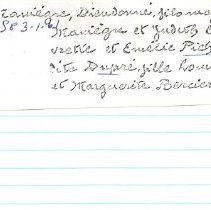 Maniègre, Dieudonné, fils ma
S83-1-96 Maniègre et Judith B
vrette et Emélie Pich
ite Dupré, fille Lou
et Marguerite Bercier